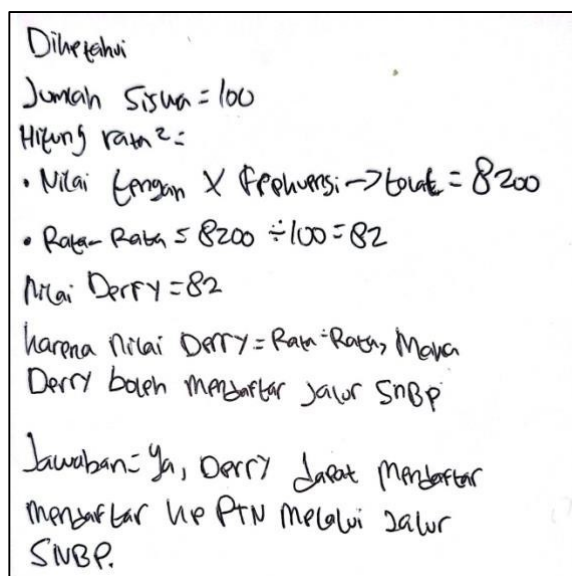 Diketahui
Jumlah Siswa = 100
Hitung rata²=
• Nilai tengah X Frekuensi → total = 8200
• Rata-Rata = 8200 ÷ 100 = 82
Nilai Derry = 82
karena nilai Derry = Rata-Rata, Maka
Derry boleh mendaftar Jalur SNBP
Jawaban = Ya, Derry dapat mendaftar
mendaftar ke PTN Melalui Jalur
SNBP.